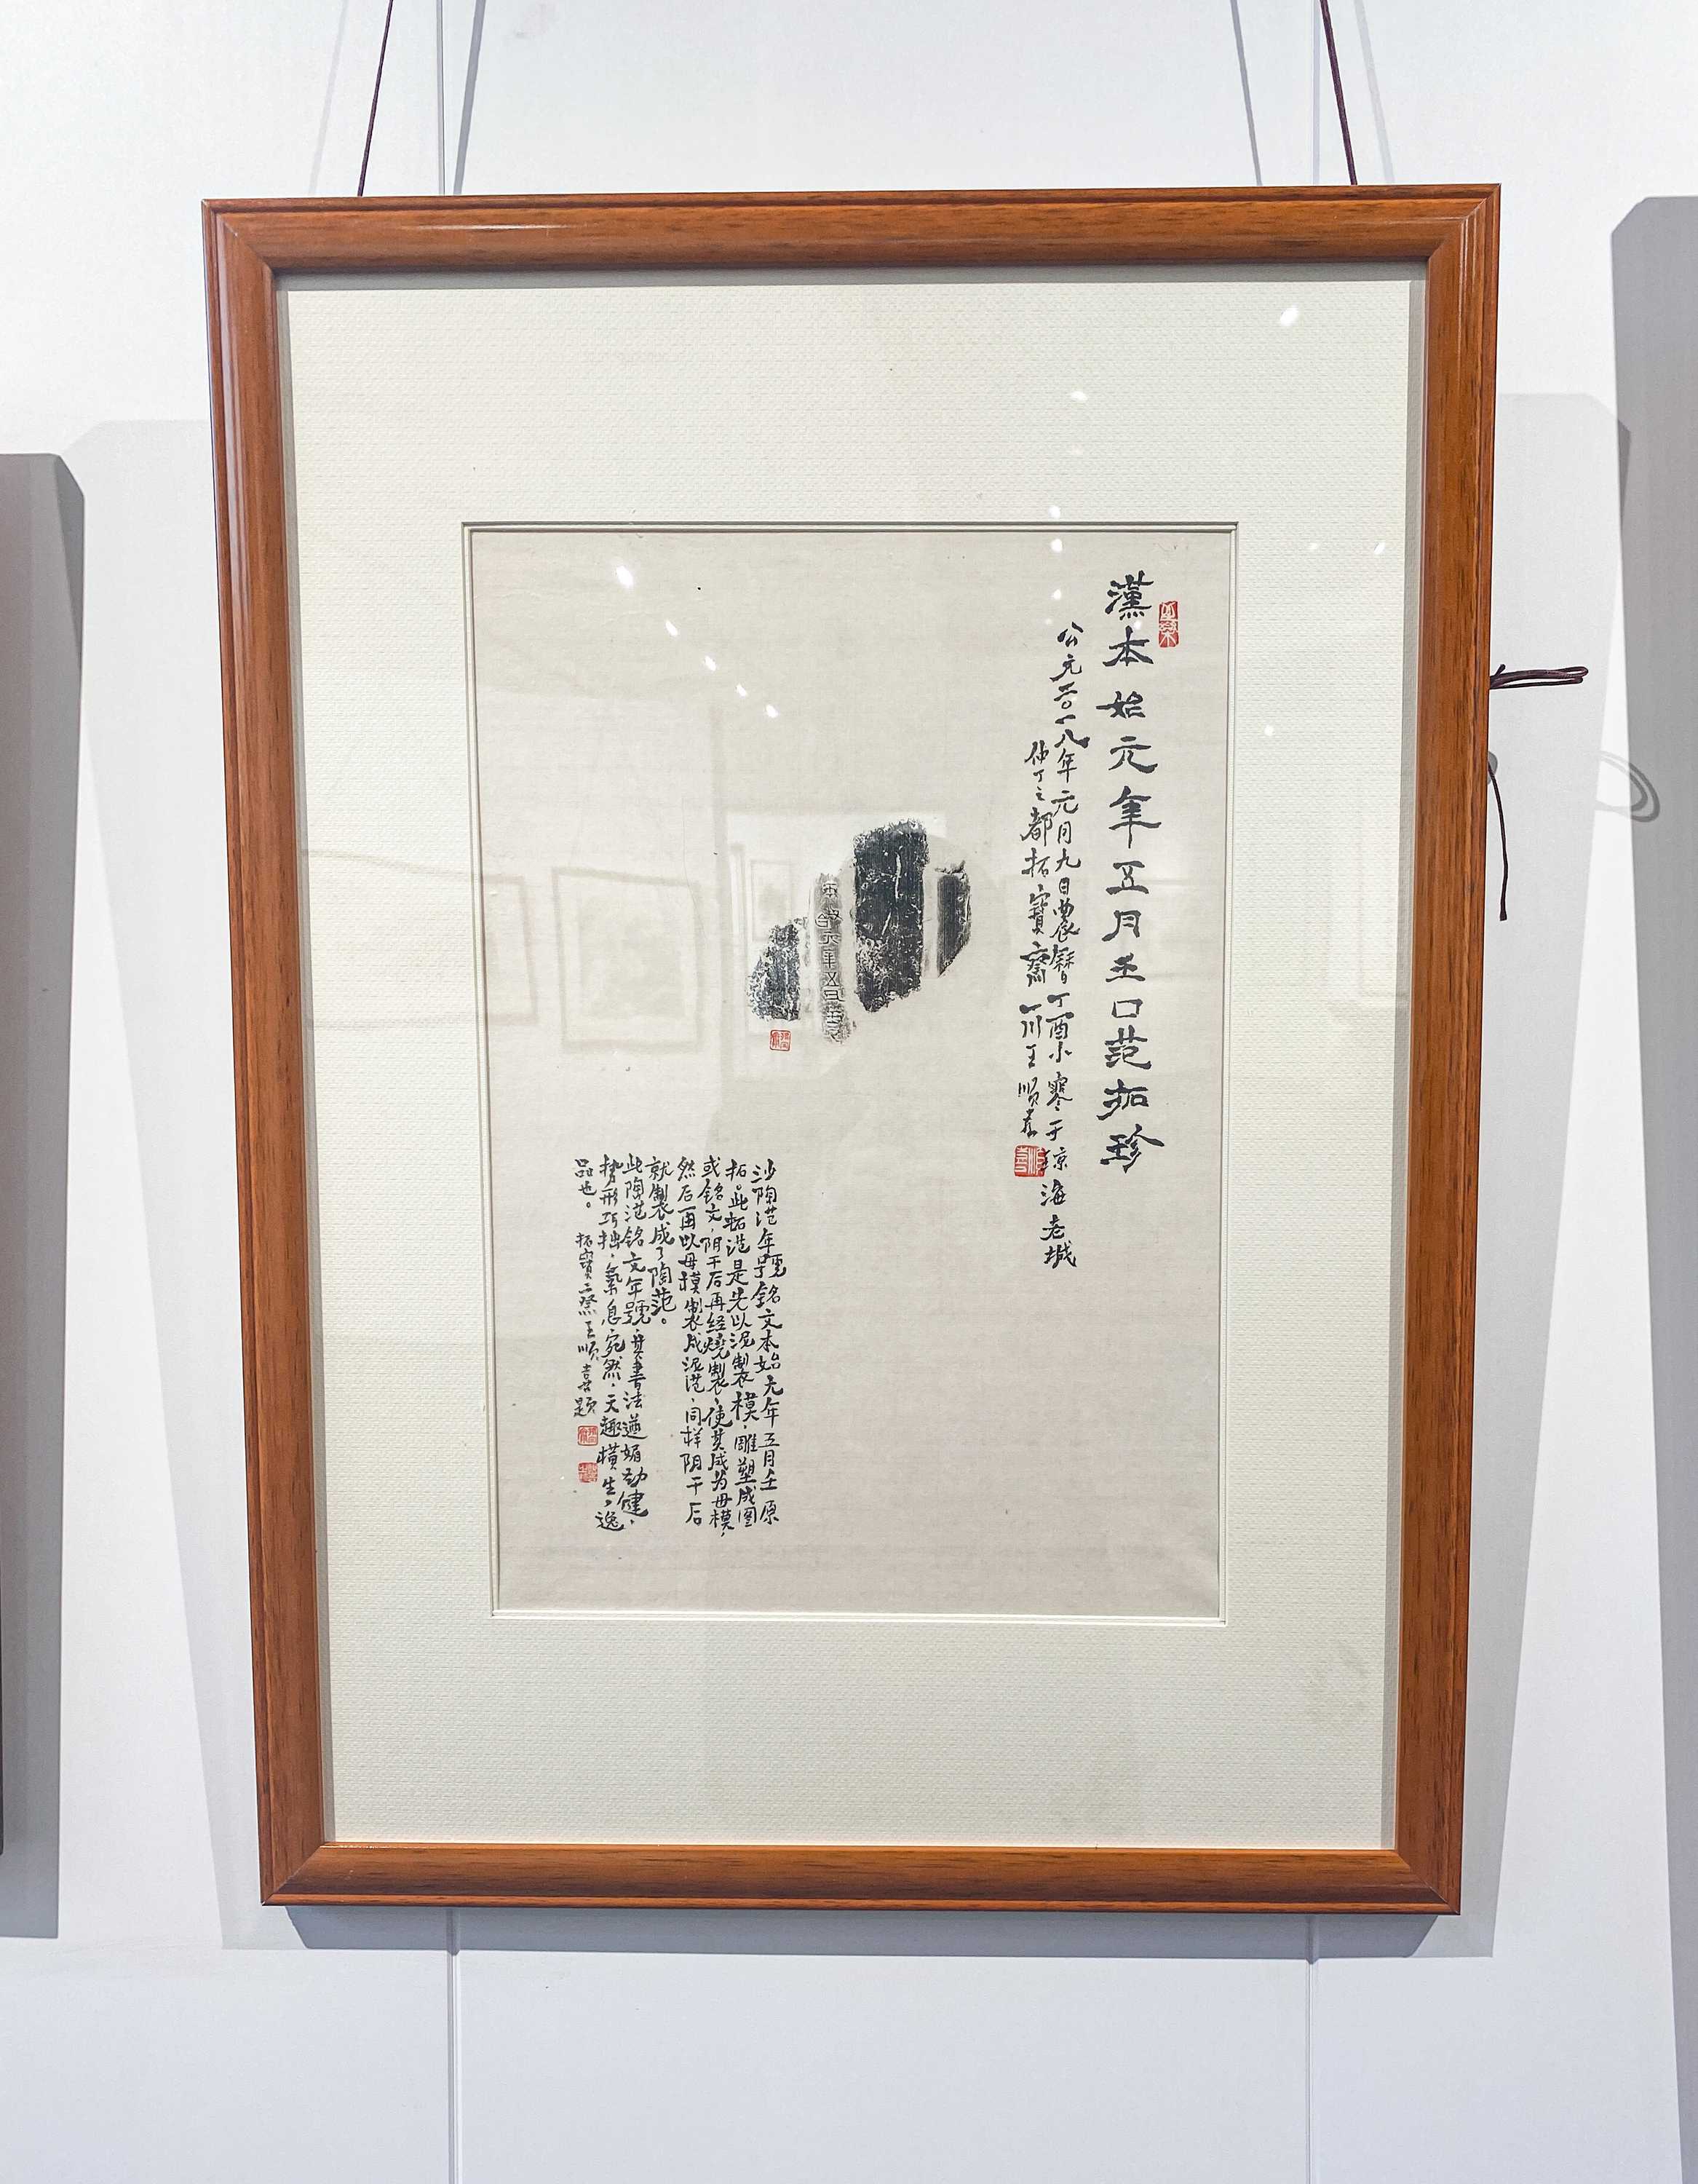 漢本始元年五月壬口范拓珍
公元二〇一八年元月九日農曆丁酉小寒于涼海老城
仲丁之都拓寶齋一川王順喜
本始元年五月壬
沙陶范年號銘文本始元年五月壬原
拓。此拓范是先以泥製模，雕塑成图
或銘文，阴干后再经燒製，使其成为母模，
然后再以母模製成泥范，同样阴干后
就製成了陶范。
此陶范銘文年號，其書法遒媚劲健，
势形巧拙，氣息宛然，天趣横生，逸
品也。 拓寶齋王順喜題